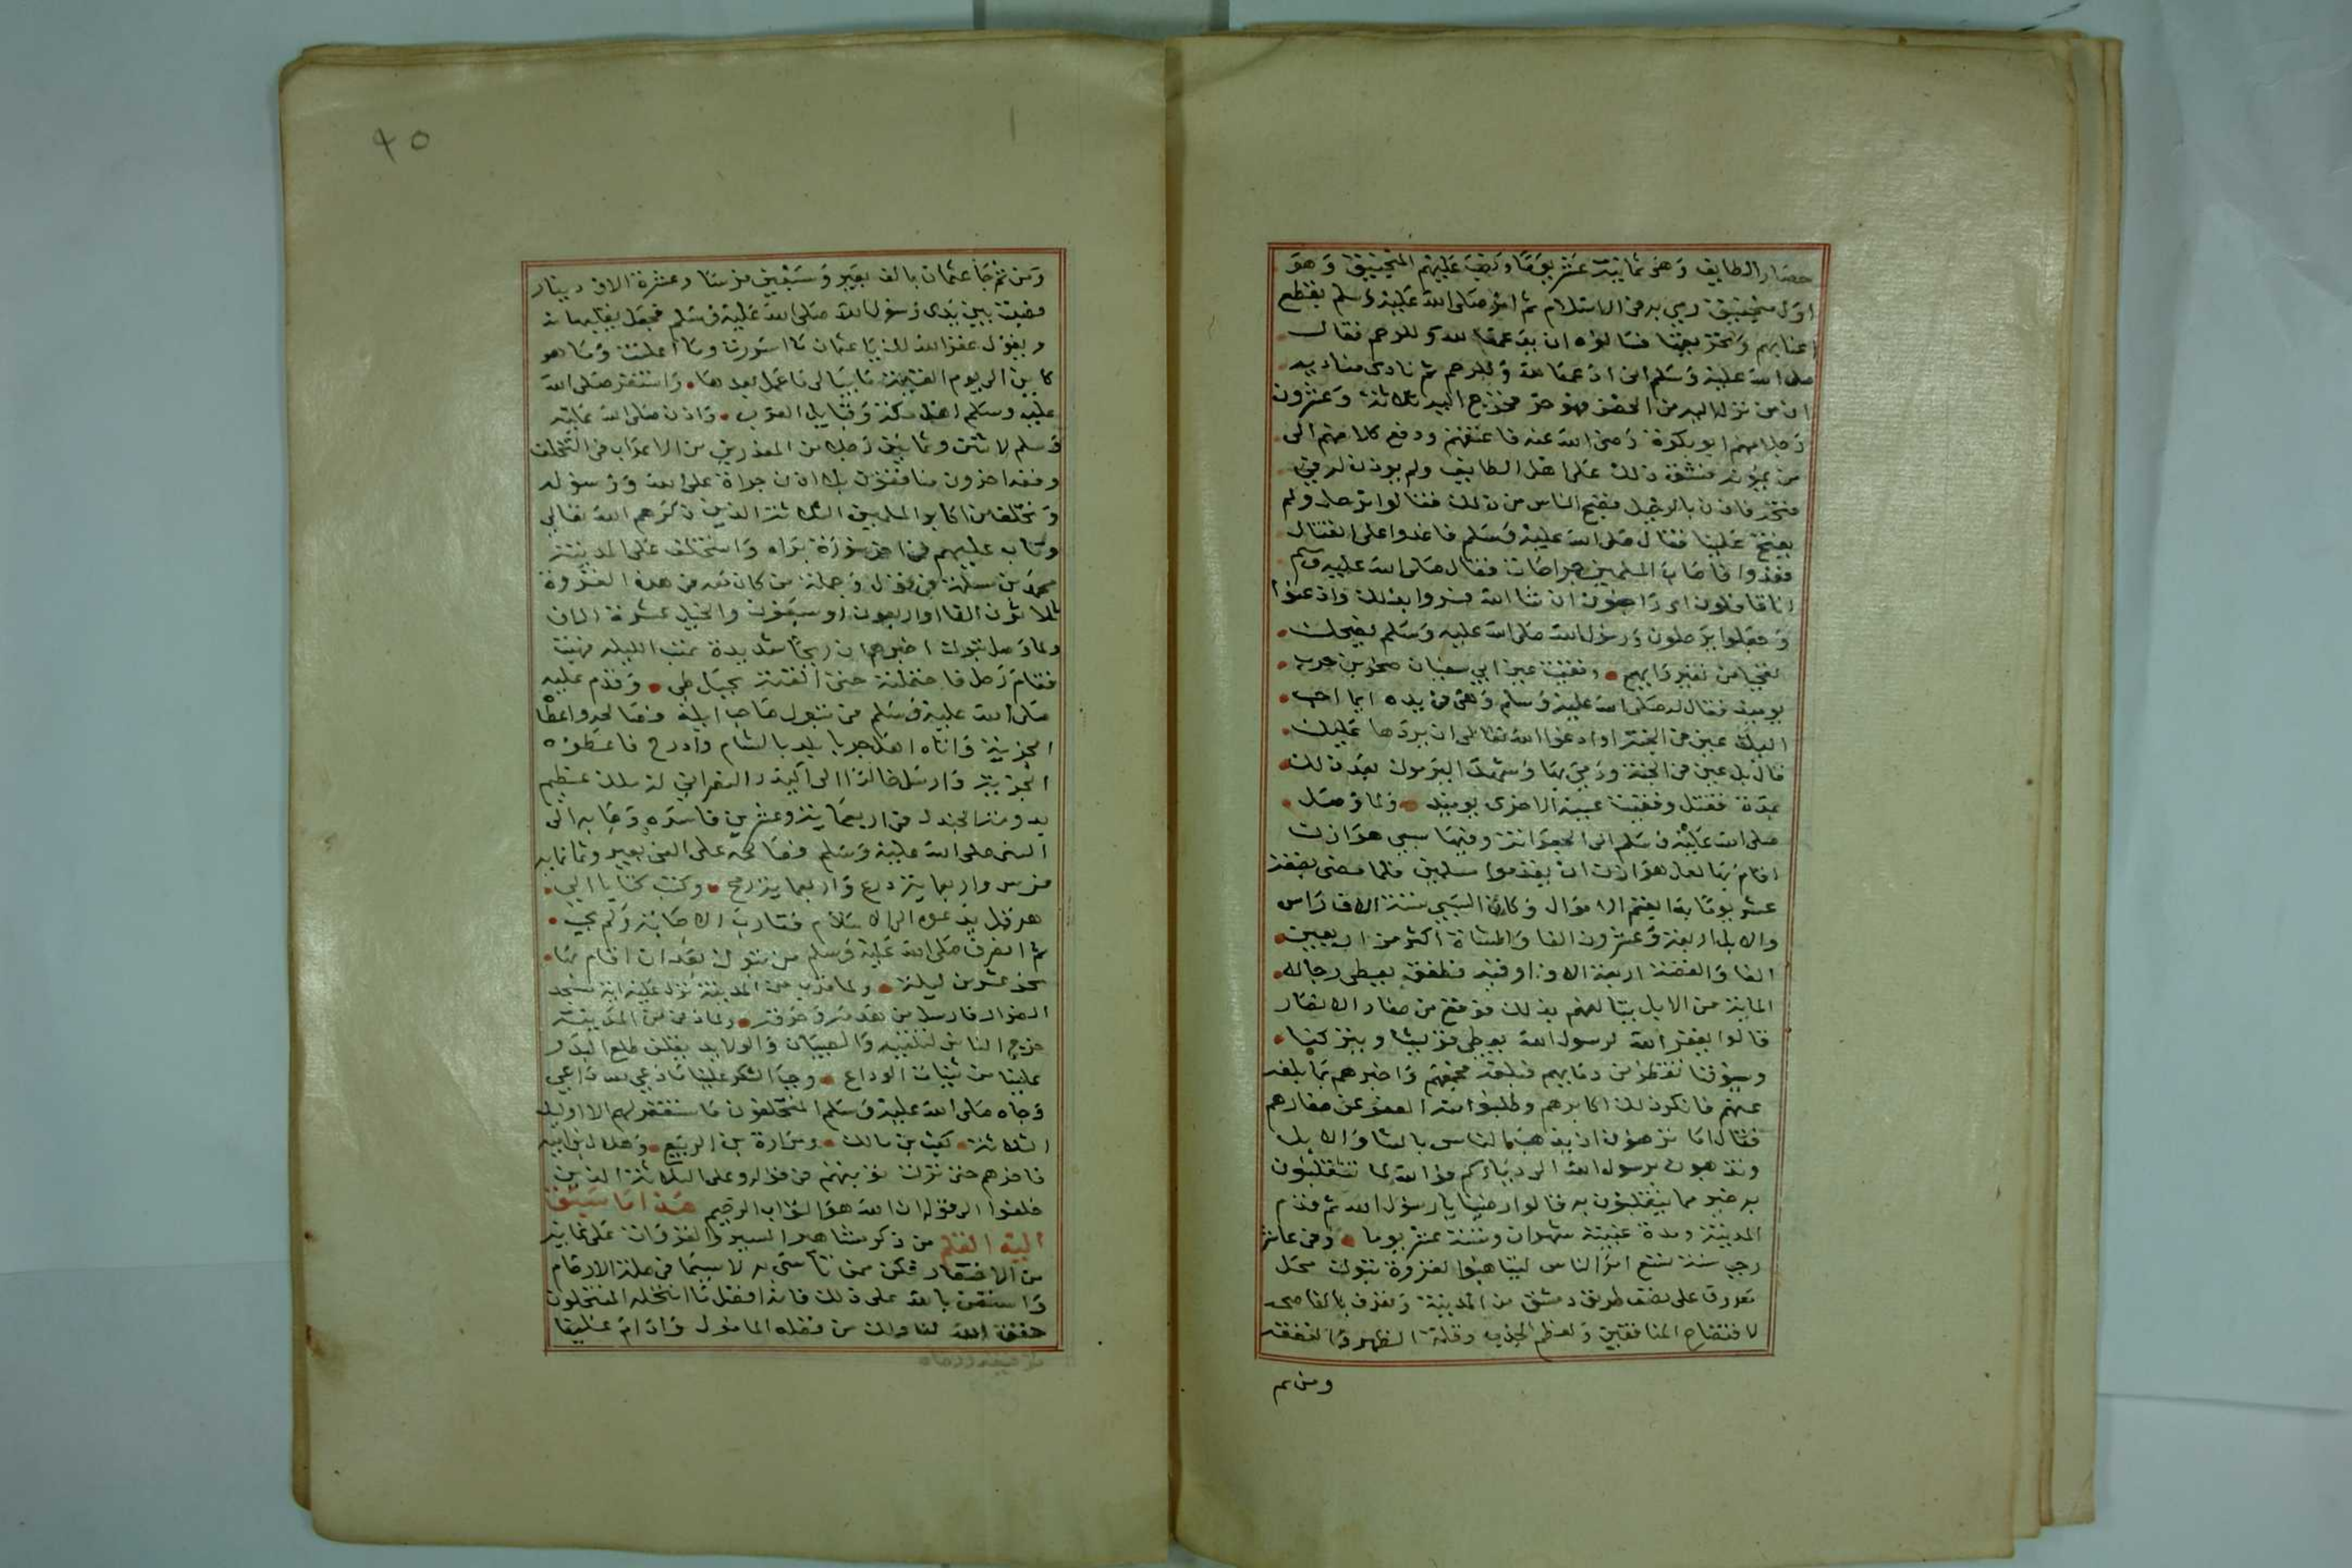 حصار الطايف وهو ثمانية عشر يوما ونصب عليهم المنجنيق وهو
اول منجنيق رمي به في الاسلام ثم امر صلى الله عليه وسلم بقطع
اعنابهم وتحريقها فسالوه ان يدعها لله وللرحم فقال
صلى الله عليه وسلم اني ادعها لله وللرحم ثم نادى مناديه
ان من نزل اليه من الحصن فهو حر فخرج اليه ثلاثة وعشرون
رجلا منهم ابو بكرة رضي الله عنه فاعتقهم ودفع كلا منهم الى
من يمونه فشق ذلك على اهل الطايف ولم يوذن له في
فتحه فاذن بالرحيل فضج الناس من ذلك فقالوا نرحل ولم
يفتح علينا فقال صلى الله عليه وسلم فاغدوا على القتال
فغدوا فاصاب المسلمين جراحات فقال صلى الله عليه وسلم
انا قافلون اي راجعون ان شا الله فسروا بذلك واذعنوا
وجعلوا يرحلون ورسول الله صلى الله عليه وسلم يضحك
تعجبا من تغير رايهم وفقيت عين ابي سفيان صخر بن حرب
يوميذ فقال له صلى الله عليه وسلم وهي في يده ايما احب
اليك عين في الجنة او ادعوا الله تعالى ان يردها عليك
قال بل عين في الجنة ورمى بها وشهد اليرموك بعد ذلك
بمدة فقتل وفقيت عينه الاخرى يوميذ ولما وصل
صلى الله عليه وسلم الى الجعرانة وفيها سبي هوازن
اقام بها لعل هوازن ان يقدموا مسلمين فلما مضى بضعة
عشر يوما بدا يقسم الاموال وكان السبي ستة الاف راس
والابل اربعة وعشرون الفا والشاة اكثر من اربعين
الفا والفضة اربعة الاف اوقية فطفق يعطي رجاله
الماية من الابل يتالفهم بذلك فوقع من صغار الانصار
قالوا يغفر الله لرسول الله يعطي قريشا ويتركنا
وسيوفنا تقطر من دمايهم فبلغه فجمعهم واخبرهم بما بلغه
عنهم فانكر ذلك اكابرهم وطلبوا منه العفو عن صغارهم
فقال اما ترضون ان يذهب الناس بالشا والابل
وتذهبون برسول الله الى دياركم فوالله لما تنقلبون
به خير مما ينقلبون به قالوا رضينا يا رسول الله ثم قدم
المدينة ومدة غيبته شهران وستة عشر يوما وفي عاشر
رجب سنة تسع امر الناس ليتاهبوا لغزوة تبوك محل
معروف على نصف طريق دمشق من المدينة وتعرف بالفاضحه
لافتضاح المنافقين ولعظم الجدب وقلة الظهر والنفقة
ومن ثم
٩٥
ومن ثم جا عثمان بالف بعير وسبعين فرسا وعشرة الاف دينار
فصبت بين يدي رسول الله صلى الله عليه وسلم فجعل يقلبها
ويقول غفر الله لك يا عثمان ما اسررت وما اعلنت وما هو
كاين الى يوم القيمة ما يبالي ما عمل بعدها واستنفر صلى الله
عليه وسلم اهل مكة وقبايل العرب واذن صلى الله عليه
وسلم لاثنين وثمانين رجلا من المعذرين من الاعراب في التخلف
وقعد اخرون منافقون بلا اذن جراة على الله ورسوله
وتخلف من اكابر المسلمين الثلاثة الذين ذكرهم الله تعالى
وتاب عليهم في اخر سورة براه واستخلف على المدينة
محمد بن مسلمة في قول وجملة من كان معه في هذه الغزوة
ثلاثون الفا او اربعون او سبعون والخيل عشرة الاف
ولما وصل تبوك اخبرهم ان ريحا شديدة تهب الليلة فهبت
فقام رجل فاحتملته حتى القته بجبل طي وقدم عليه
صلى الله عليه وسلم في تبوك صاحب ايلة فصالحه واعطا
الجزية واتاه اهل جربا بلد بالشام واذرح فاعطوه
الجزية وارسل خالدا الى اكيدر النصراني له ملك عظيم
بدومة الجندل في اربعماية وعشرين فاسره وجا به الى
النبي صلى الله عليه وسلم فصالحه على الفي بعير وثمانمايه
فرس واربعماية درع واربعماية رمح وكتب كتابا الى
هرقل يدعوه الى الاسلام فقارب الاجابة ولم يجب
ثم انصرف صلى الله عليه وسلم من تبوك بعد ان اقام بها
نحو عشرين ليلة ولما قرب من المدينة نزل عليه اية مسجد
الضرار فارسل من هدمه وحرقه ولما دنى من المدينة
خرج الناس لتلقيه والصبيان والولايد يقلن طلع البدر
علينا من ثنيات الوداع وجب الشكر علينا ما دعى لله داعي
وجاه صلى الله عليه وسلم المتخلفون فاستغفر لهم الا اوليك
الثلاثة كعب بن مالك ومرارة بن الربيع وهلال بن امية
فاخرهم حتى نزلت توبتهم في قوله وعلى الثلاثة الذين
خلفوا الى قوله ان الله هو التواب الرحيم هذا ما سبق
اليه القلم من ذكر مشاهير السير والغزوات على غاية
من الاختصار فكن ممن تاسى به لا سيما في صلة الارحام
واستعن بالله على ذلك فانه افضل ما انتحله المنتحلون
حقق الله لنا ولك من فضله المامول وادام علينا